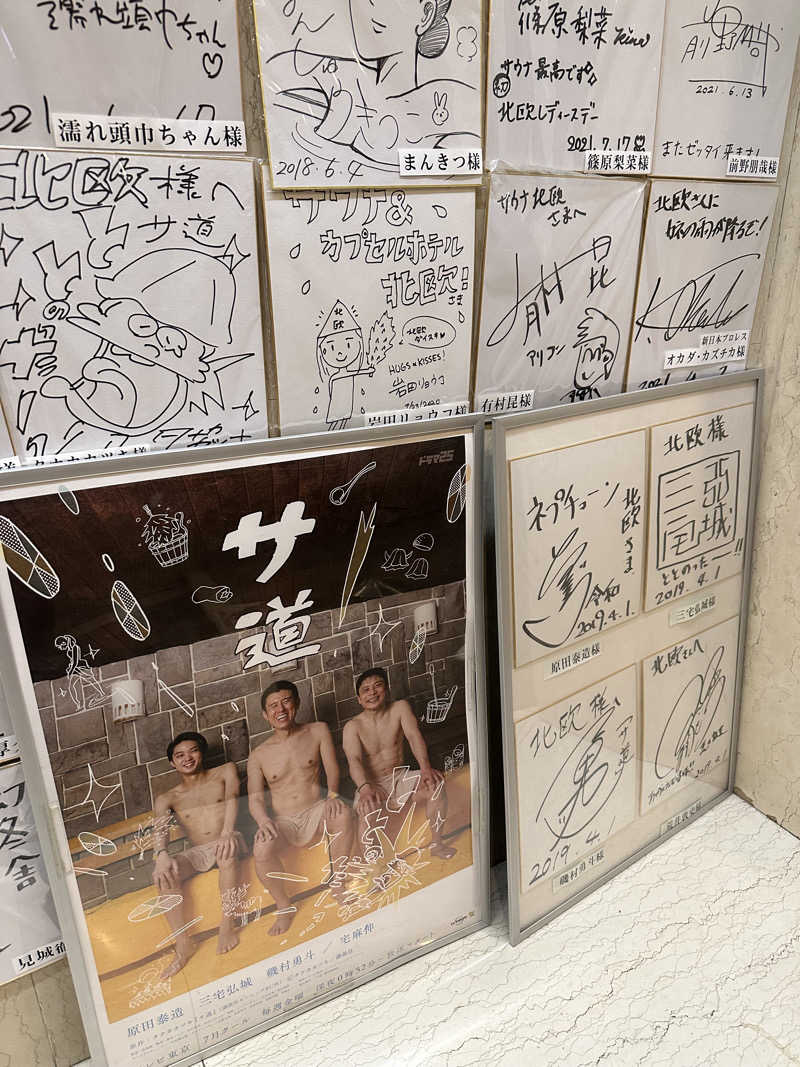 濡れ頭巾ちゃん様
2018.6.4
まんきつ様
篠原梨菜
サウナ最高です
北欧レディースデー
2021.7.17
篠原梨菜様
2021.6.13
またゼッタイ来ます!
前野朋哉様
北欧様へ
サ道
サウナ&
カプセルホテル
北欧!
さま
北欧
北欧
ダイスキ
HUGS & KISSES!
岩田リョウコ
岩田リョウコ様
サウナ北欧
さまへ
有村昆
アリコン
有村昆様
北欧さんに
金の雨が降るぞ!
新日本プロレス
オカダ・カズチカ様
ドラマ25
サ道
原田泰造 三宅弘城 磯村勇斗 / 宅麻伸
テレビ東京 7月クール 毎週金曜 深夜0時52分〜放送スタート
ネプチューン
北欧さま
令和
2019.4.1.
原田泰造様
北欧様
三宅弘城
ととのったー!!
2019.4.1
三宅弘城様
北欧様へ
サ道
2019.4.1
磯村勇斗様
北欧さんへ
2019.4.1
荒井敦史様
幻冬舎
見城徹